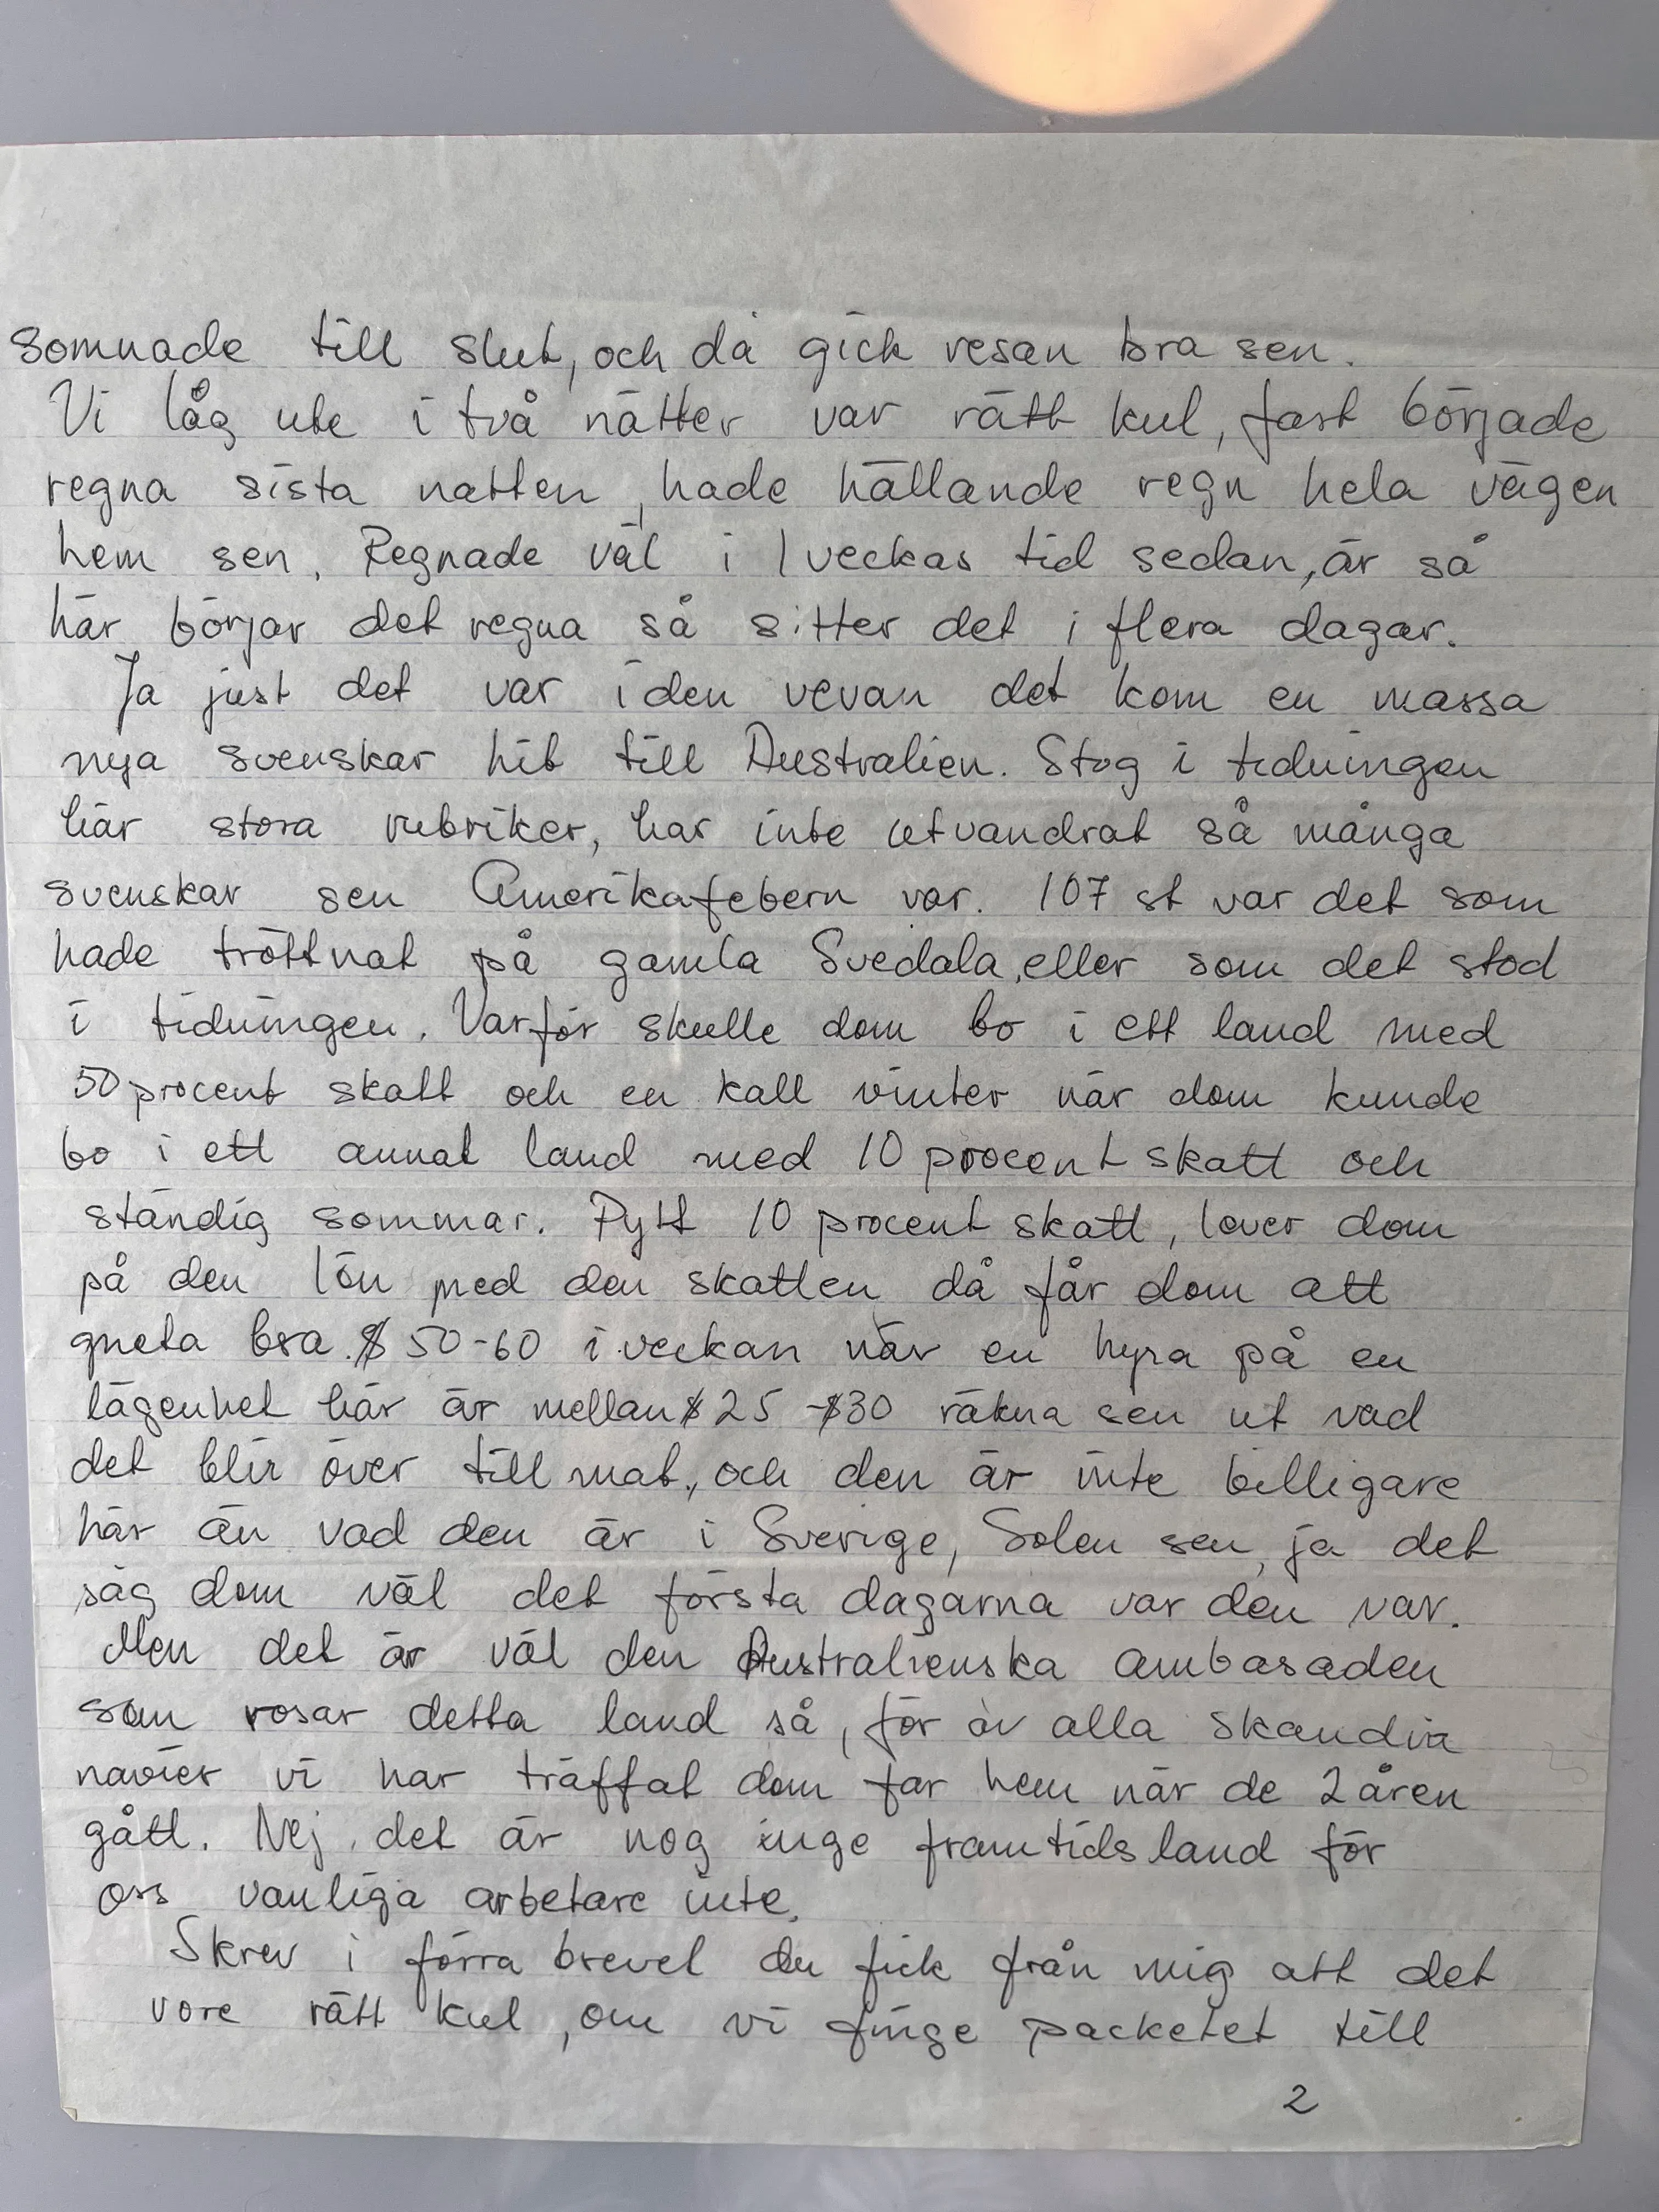 somnade till slut, och då gick resan bra sen.
Vi låg ute i två nätter var rätt kul, fast började
regna sista natten, hade hällande regn hela vägen
hem sen. Regnade väl i 1 veckas tid sedan, är så
här börjar det regna så sitter det i flera dagar.
Ja just det var i den vevan det kom en massa
nya svenskar hit till Australien. Stog i tidningen
här stora rubriker, har inte utvandrat så många
svenskar sen Amerikafebern var. 107 st var det som
hade tröttnat på gamla Svedala, eller som det stod
i tidningen. Varför skulle dom bo i ett land med
50 procent skatt och en kall vinter när dom kunde
bo i ett annat land med 10 procent skatt och
ständig sommar. Pytt 10 procent skatt, lever dom
på den lön med den skatten då får dom att
gneta bra. $ 50-60 i veckan när en hyra på en
lägenhet här är mellan $ 25 - $30 räkna sen ut vad
det blir över till mat, och den är inte billigare
här än vad den är i Sverige, Solen sen, ja det
såg dom väl det första dagarna var den var.
Men det är väl den Australienska ambasaden
som rosar detta land så, för av alla skandina
navier vi har träffat dom far hem när de 2 åren
gått. Nej det är nog inge framtidsland för
oss vanliga arbetare inte.
Skrev i förra brevet du fick från mig att det
vore rätt kul, om vi finge packetet till
2